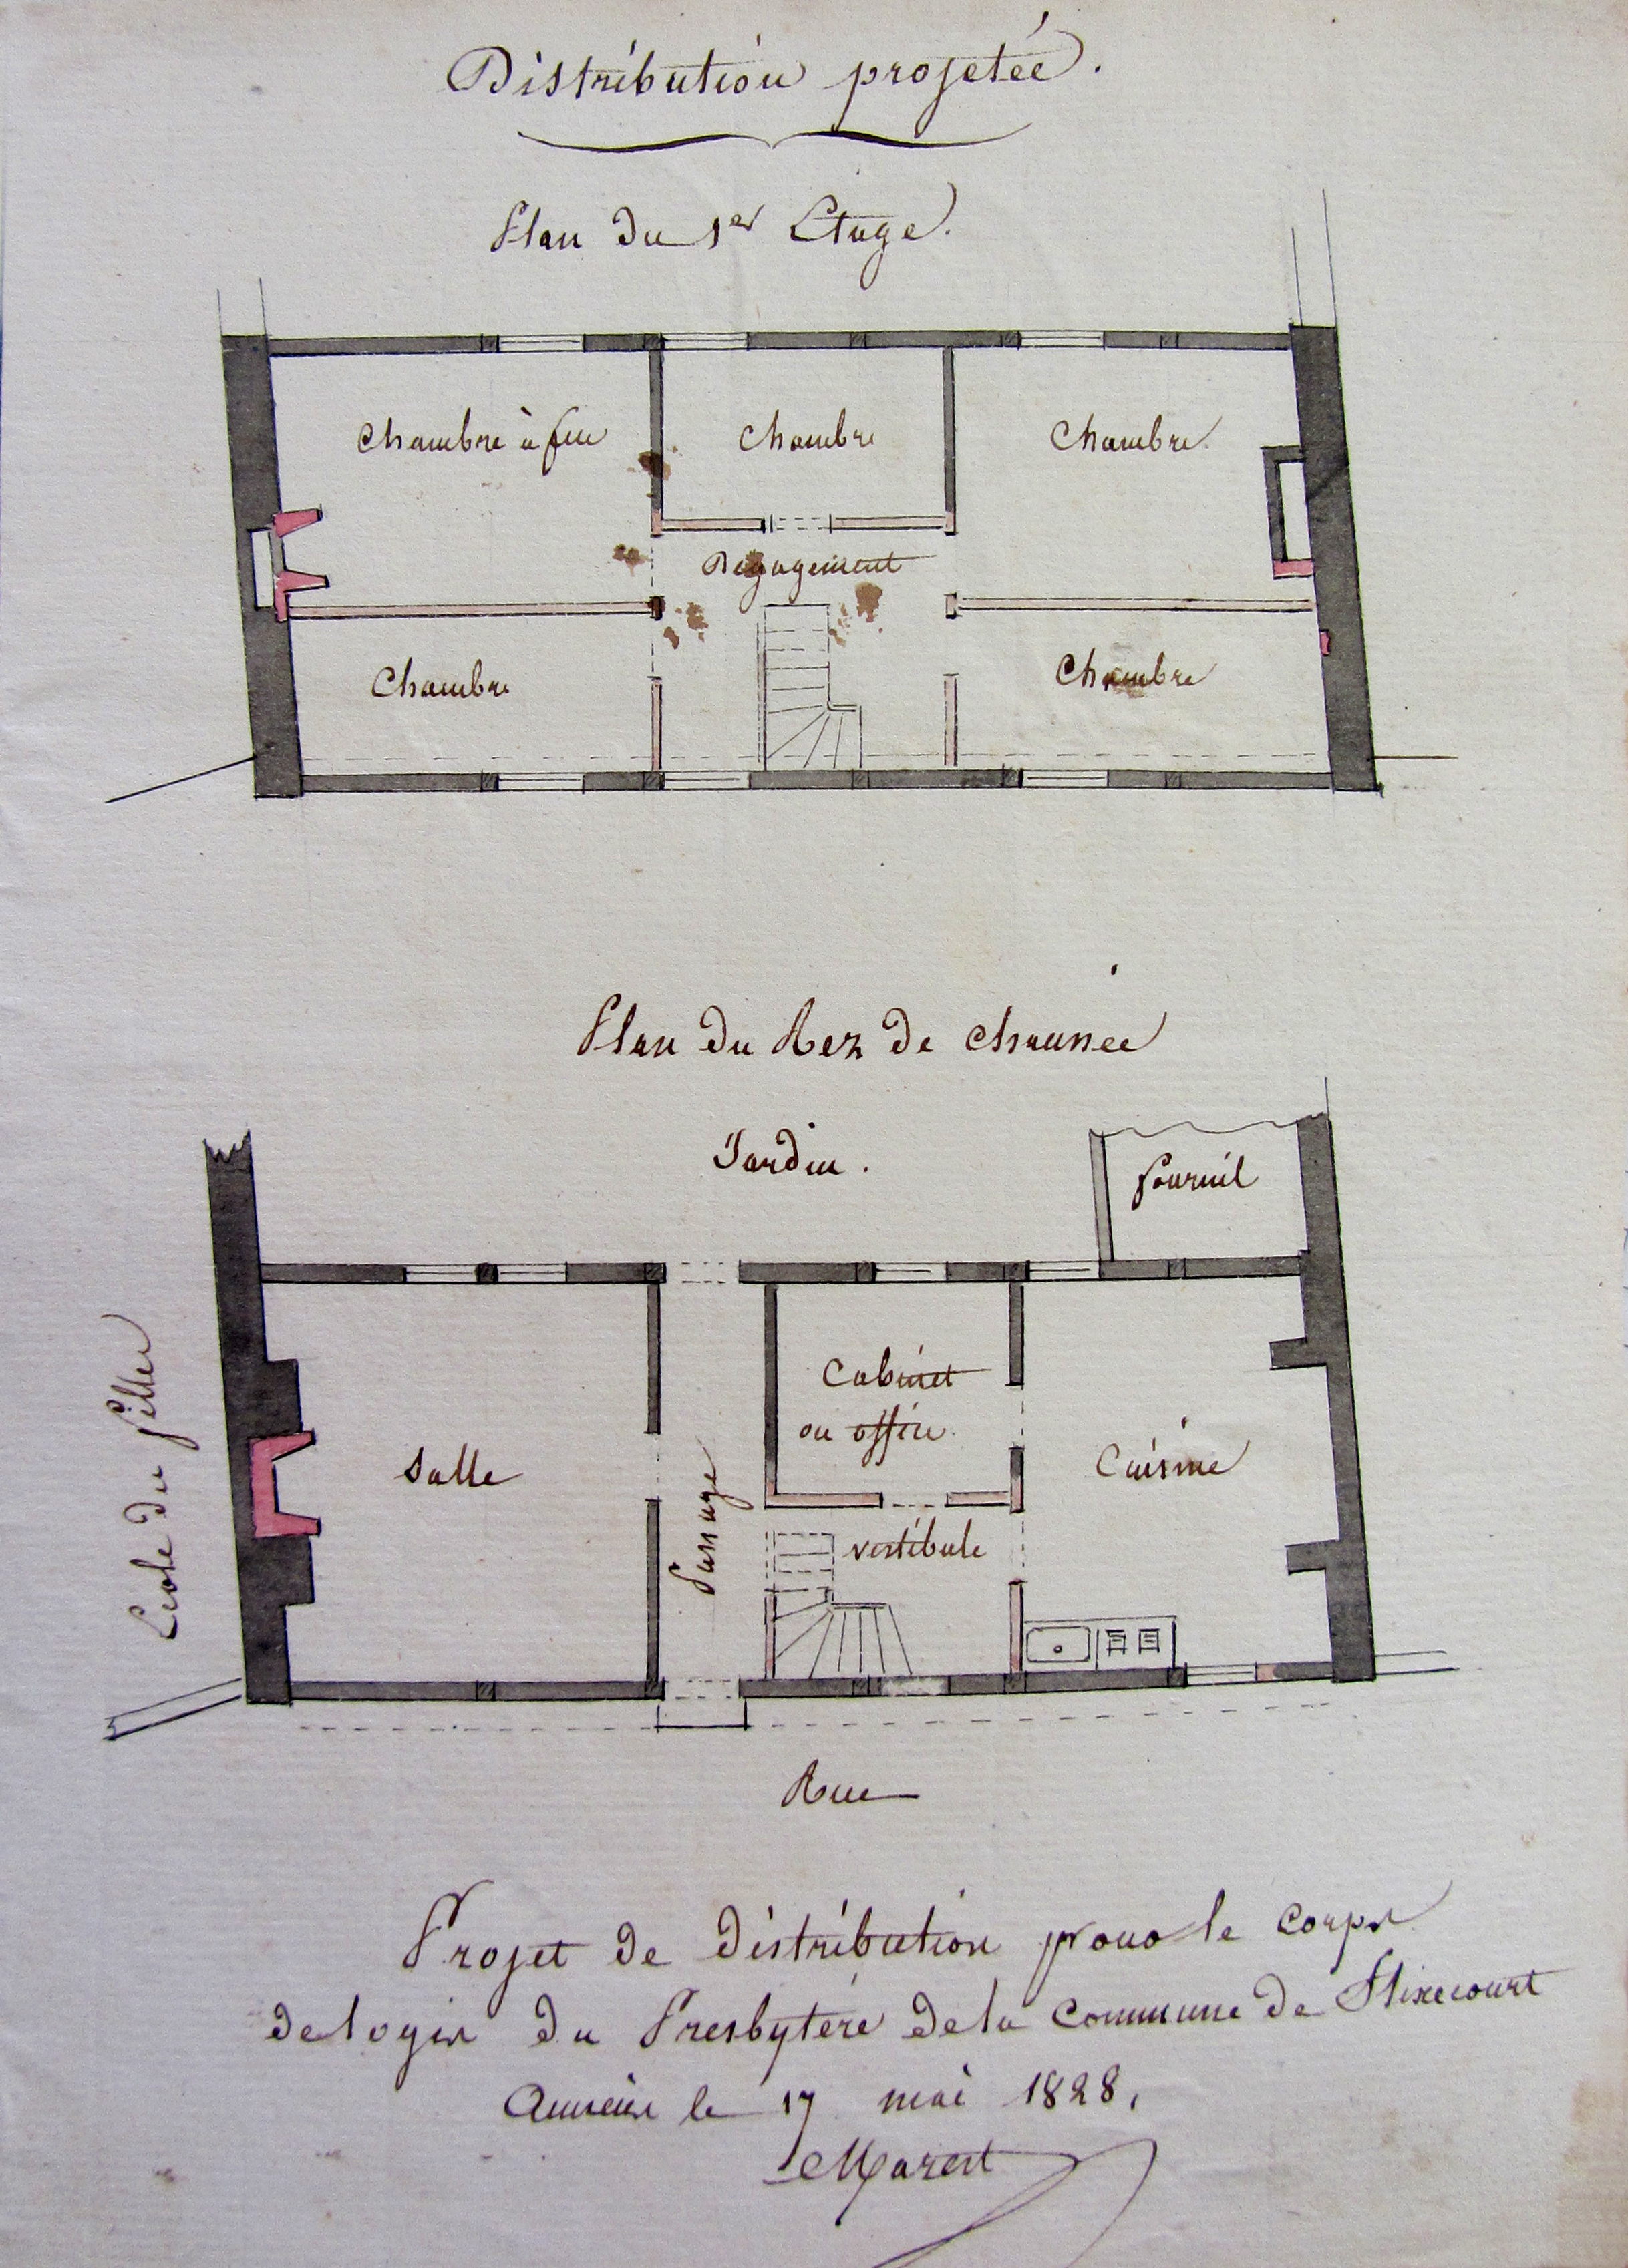 Distribution projetée.
Plan du 1er Etage.
Chambre à feu
Chambre
Chambre
Dégagement
Chambre
Chambre
Plan du Rez de chaussée
Jardin.
fournil
Ecole des filles
Salle
Passage
Cabinet
ou office
Cuisine
vestibule
Rue
Projet de distribution pour le corps
de logis du Presbytère de la Commune de Flixecourt
Amiens le 17 mai 1828,